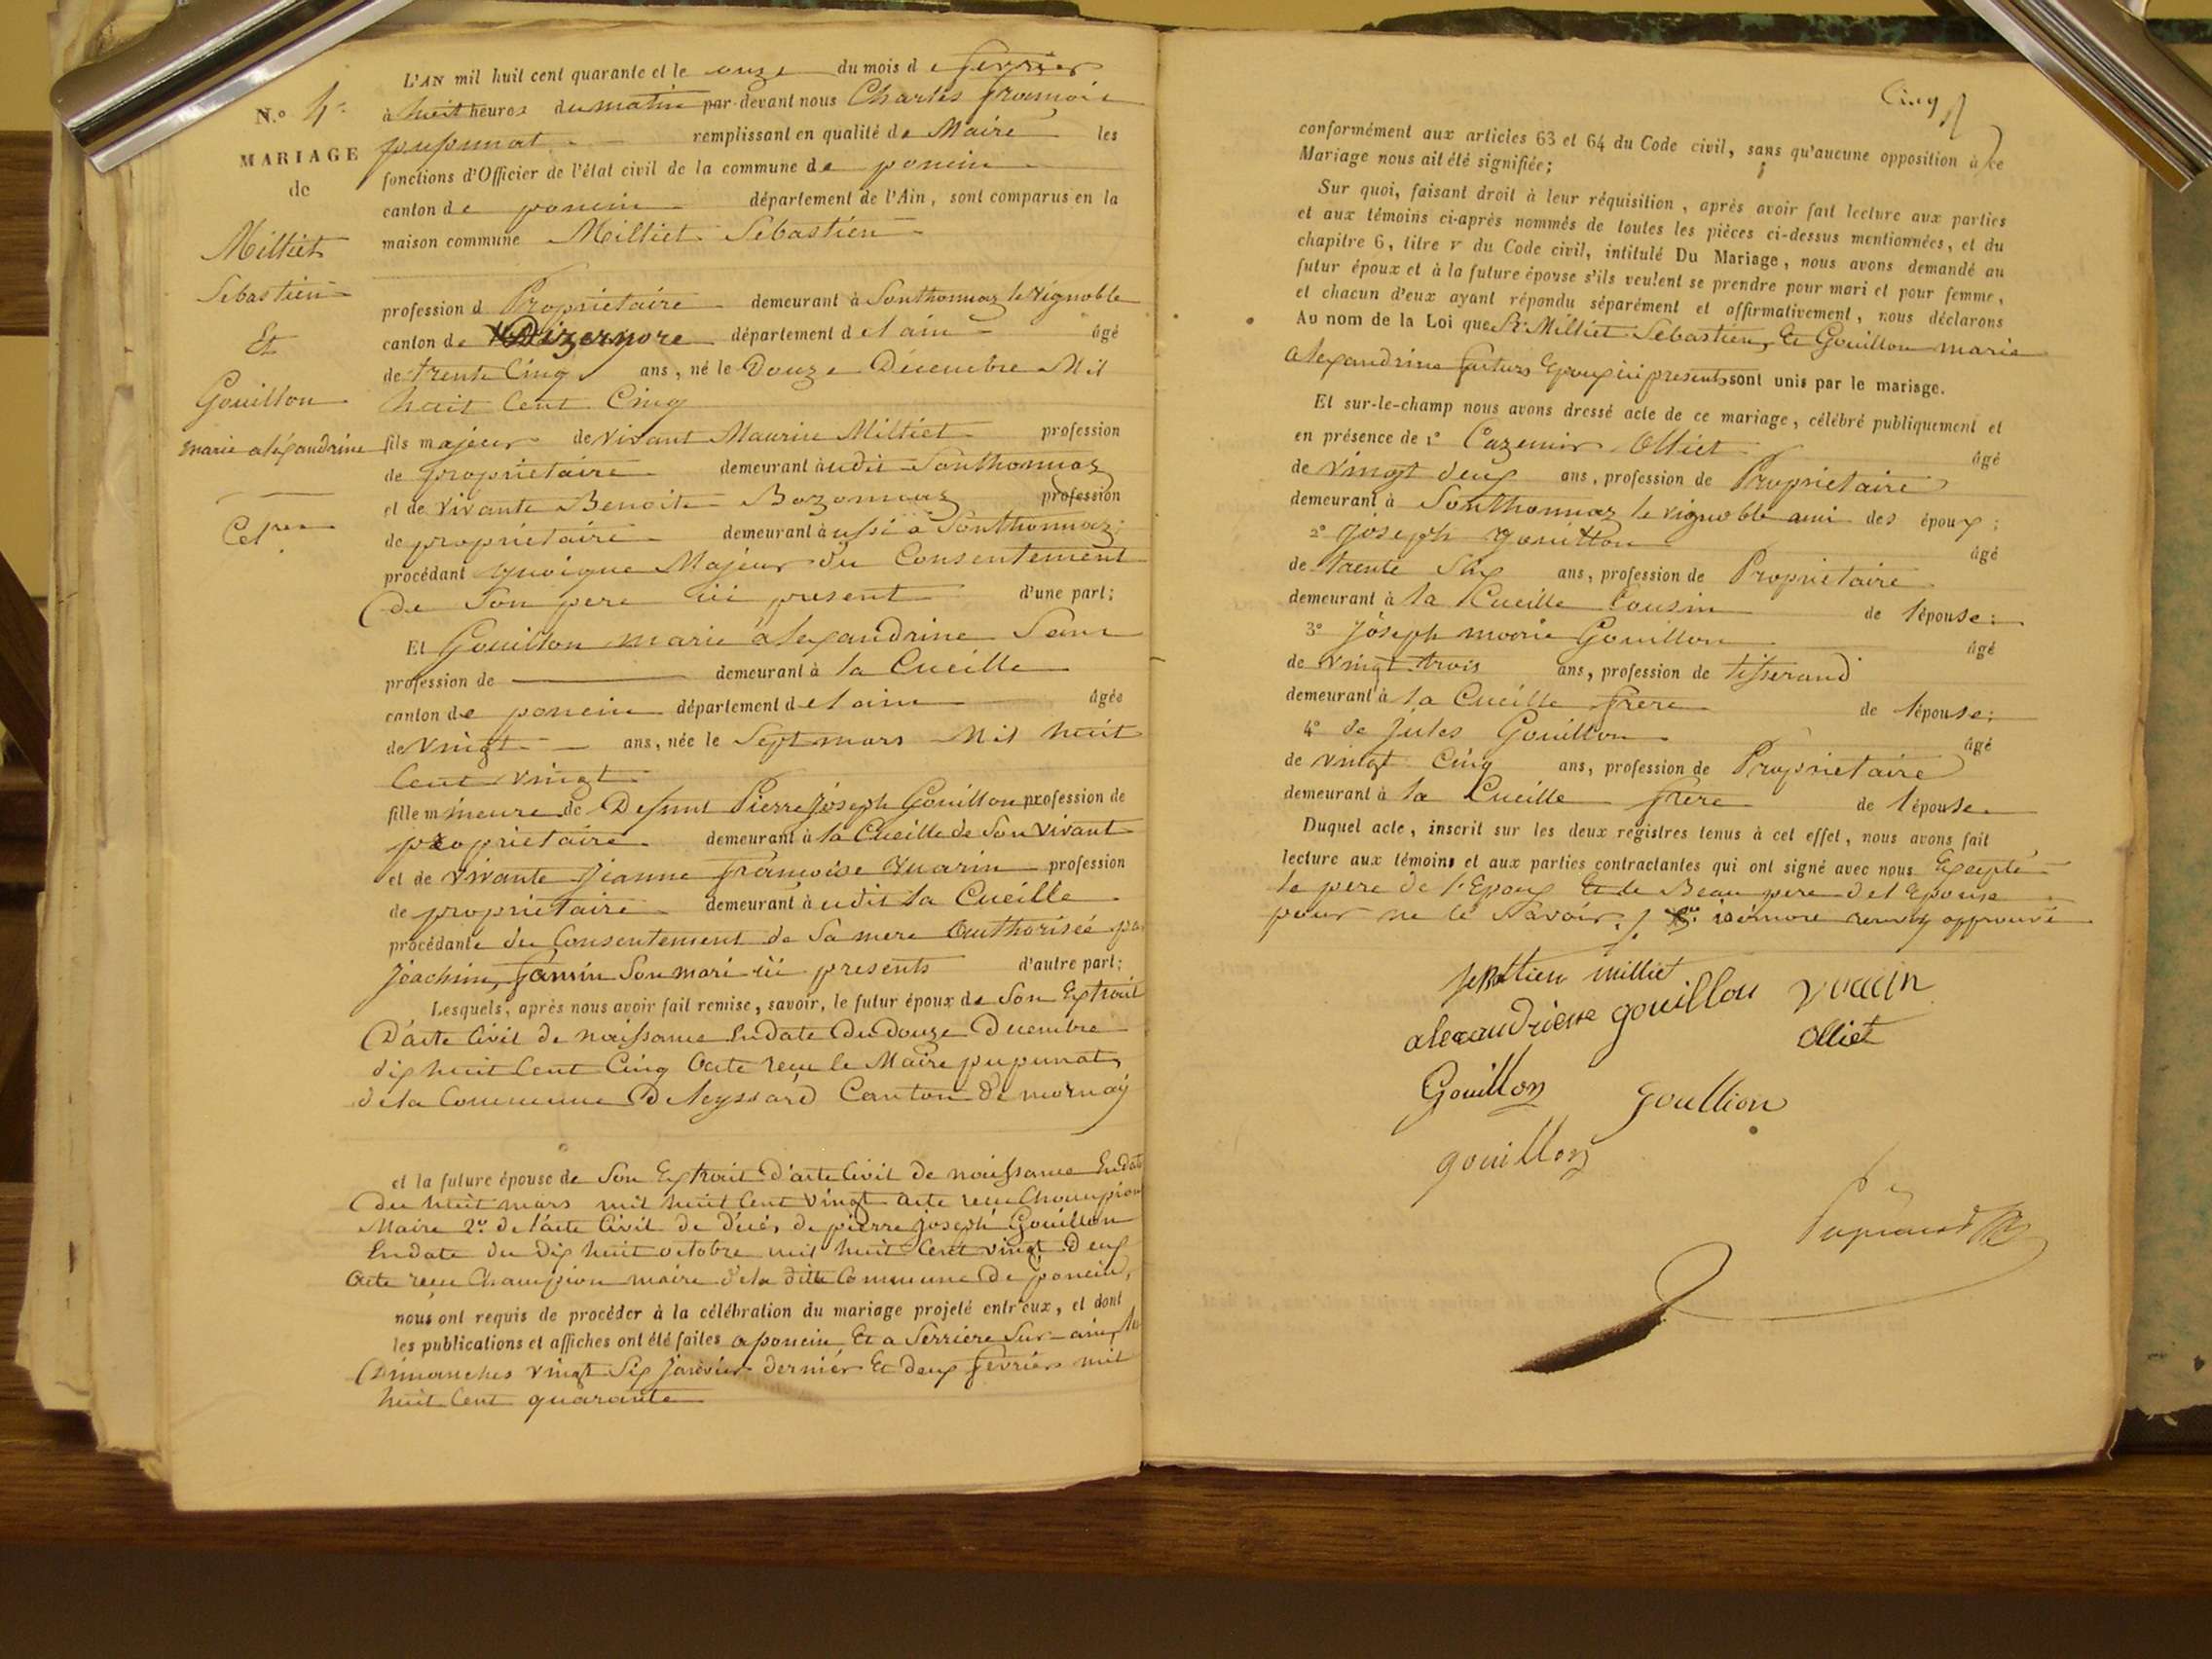 N.o 4.
MARIAGE
de
Milliet
Sebastien
Et
Gouillon
marie aléxandrine
L'AN mil huit cent quarante et le onze du mois de fevrier
à huit heures du matin par-devant nous Charles françois
pupunat remplissant en qualité de Maire les
fonctions d'Officier de l'état civil de la commune de poncin
canton de poncin département de l'Ain, sont comparus en la
maison commune Milliet Sébastien
profession d Propriétaire demeurant à Sonthonnaz le vignoble
canton de Dizernore département de l ain âgé
de trente Cinq ans, né le Douze Décembre Mil
huit Cent Cinq
fils majeur de vivant Maurice Milliet profession
de propriétaire demeurant àudit Sonthonnaz
et de vivante Benoite Bozonnaz profession
de propriétaire demeurant àussi à Sonthonnaz
procédant quoique Majeur du Consentement
de Son pere ici présent d'une part;
Et Gouillon marie aléxandrine Sans
profession de demeurant à la Cueille
canton de poncin département de l ain âgée
de vingt ans, née le Sept mars Mil huit
Cent vingt
fille mineure de Defunt Pierre Joseph Gouillon profession de
propriétaire demeurant à la Cueille de Son vivant
et de vivante Jeanne françoise Quarin profession
de propriétaire demeurant àudit la Cueille
procédante du Consentement de Sa mere authorisée par
Joachim Son mari ici presents d'autre part;
Lesquels, après nous avoir fait remise, savoir, le futur époux de Son Extrait
D'acte Civil de naissance En date du Douze Decembre
dix huit Cent Cinq acte recu le Maire pupunat
de la Commune De leyssard Canton De mornay
et la future épouse de Son Extrait D'acte Civil de naissance En date
Du huit mars mil huit Cent vingt acte recu Champion
Maire 2° De l'acte Civil de décés de pierre joseph Gouillon
En date du Dix huit octobre mil huit Cent vingt Deux
acte recu Champion maire de la ditte Commune De poncin,
nous ont requis de procéder à la célébration du mariage projeté entr'eux, et dont
les publications et affiches ont été faites a poncin Et a Serriere Sur ain, les
Dimanches vingt Six janvier dernier Et deux fevrier mil
huit Cent quarante
Cinq
conformément aux articles 63 et 64 du Code civil, sans qu'aucune opposition à ce
Mariage nous ait été signifiée;
Sur quoi, faisant droit à leur réquisition, après avoir fait lecture aux parties
et aux témoins ci-après nommés de toutes les pièces ci-dessus mentionnées, et du
chapitre 6, titre v du Code civil, intitulé Du Mariage, nous avons demandé au
futur époux et à la future épouse s'ils veulent se prendre pour mari et pour femme,
et chacun d'eux ayant répondu séparément et affirmativement, nous déclarons
Au nom de la Loi que Sr Milliet Sebastien, Et Gouillon marie
alexandrine futurs Epoux ici presents sont unis par le mariage.
Et sur-le-champ nous avons dressé acte de ce mariage, célébré publiquement et
en présence de 1° Cazemir Olliet âgé
de vingt deux ans, profession de Propriétaire
demeurant à Sonthonnaz le vignoble ami des époux;
2° joseph gouillon âgé
de trente Six ans, profession de Propriétaire
demeurant à la Cueille Cousin de lépouse;
3° joseph marie Gouillon âgé
de vingt trois ans, profession de tisserand
demeurant à la Cueille frere de lépouse;
4° de jules Gouillon âgé
de vingt Cinq ans, profession de Propriétaire
demeurant à la Cueille frere de lépouse.
Duquel acte, inscrit sur les deux registres tenus à cet effet, nous avons fait
lecture aux témoins et aux parties contractantes qui ont signé avec nous Excepté
le pere de l'Epoux Et le Beau pere de l Epouse
pour ne le Savoir. isernore renvoy approuvé
milliet
alexandrine gouillon
Olliet
Gouillon goullion
gouillon